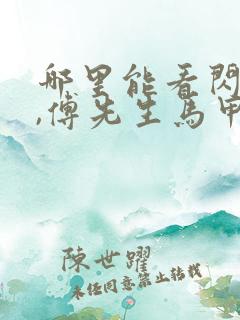 哪里能看閃
,傅先生馬甲
陳世躍
未经同意禁止转载